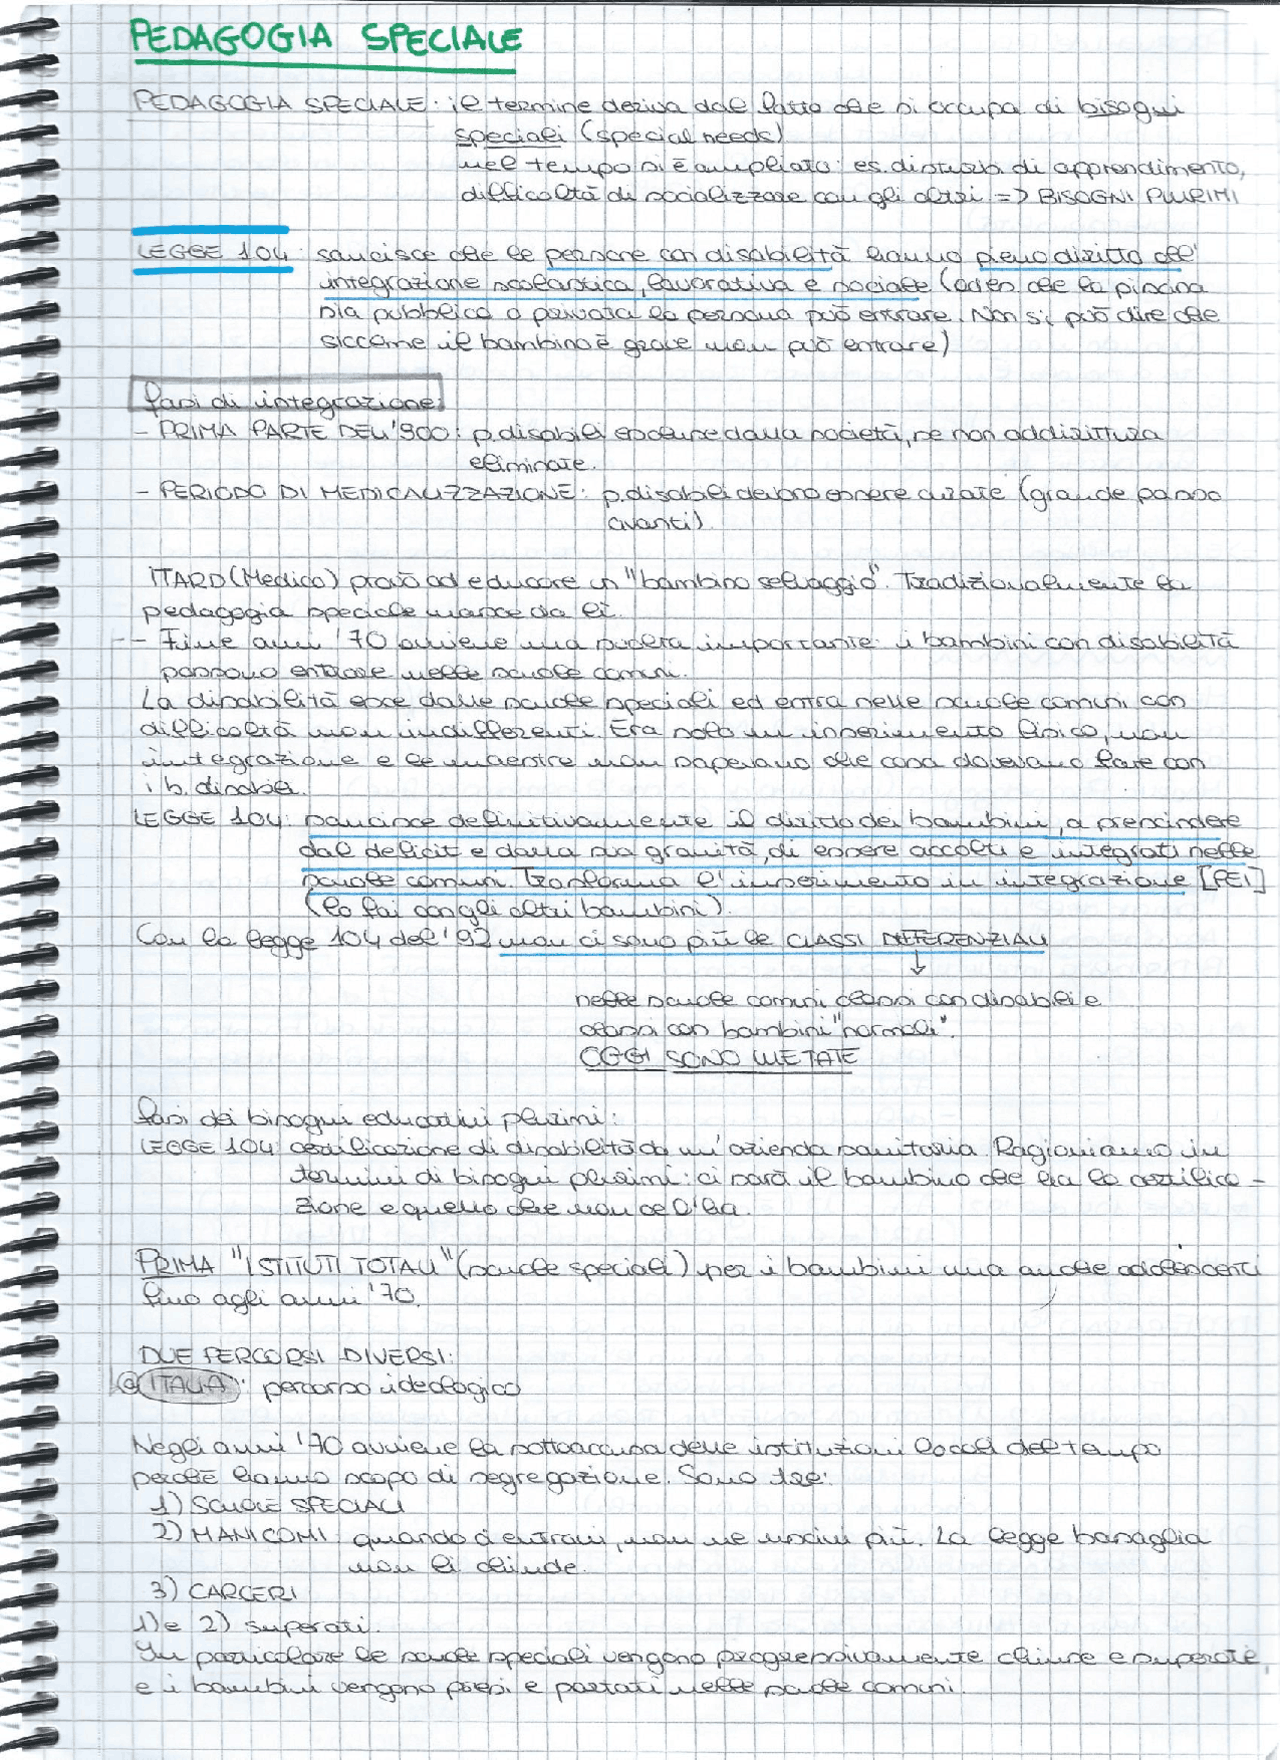 PEDAGOGIA SPECIALE
PEDAGOGIA SPECIALE: il termine deriva dal fatto che si occupa di bisogni
speciali (special needs)
nel tempo si è ampliato: es. disturbi di apprendimento,
difficoltà di socializzare con gli altri => BISOGNI PLURIMI
LEGGE 104: sancisce che le persone con disabilità hanno pieno diritto all'
integrazione scolastica, lavorativa e sociale (ad es. che la piscina
sia pubblica o privata la persona può entrare. Non si può dire che
siccome il bambino è grave non può entrare)
fasi di integrazione:
- PRIMA PARTE DELL'900: p. disabili escluse dalla società, se non addirittura
eliminate.
- PERIODO DI MEDICALIZZAZIONE: p. disabili devono essere curate (grande passo
avanti)
ITARD (Medico) provò ad educare un "bambino selvaggio". Tradizionalmente la
pedagogia speciale nasce da lì.
- Fine anni '70 avviene una scelta importante: i bambini con disabilità
possono entrare nelle scuole comuni.
La disabilità esce dalle scuole speciali ed entra nelle scuole comuni con
difficoltà non indifferenti. Era solo un inserimento fisico, non
integrazione e le maestre non sapevano che cosa dovevano fare con
i b. disabili.
LEGGE 104: sancisce definitivamente il diritto dei bambini, a prescindere
dal deficit e dalla sua gravità, di essere accolti e integrati nelle
scuole comuni. Trasforma l'inserimento in integrazione [PEI]
(lo fai con gli altri bambini).
Con la legge 104 del '92 non ci sono più le CLASSI DIFFERENZIALI
↓
nelle scuole comuni classi con disabili e
classi con bambini "normali".
OGGI SONO VIETATE
fasi dei bisogni educativi plurimi:
LEGGE 104: certificazione di disabilità da un'azienda sanitaria. Ragioniamo in
termini di bisogni plurimi: ci sarà il bambino che ha la certifica-
zione e quello che non ce l'ha.
PRIMA "ISTITUTI TOTALI" (scuole speciali) per i bambini ma anche adolescenti
fino agli anni '70.
DUE PERCORSI DIVERSI:
ITALIA: percorso ideologico
Negli anni '70 avviene la sottoaccusa delle istituzioni locali del tempo
perché hanno scopo di segregazione. Sono tre:
1) SCUOLE SPECIALI
2) MANICOMI: quando ci entravi, non ne uscivi più. La legge basaglia
non li chiude.
3) CARCERI
1) e 2) superati.
In particolare le scuole speciali vengono progressivamente chiuse e superate,
e i bambini vengono presi e portati nelle scuole comuni.